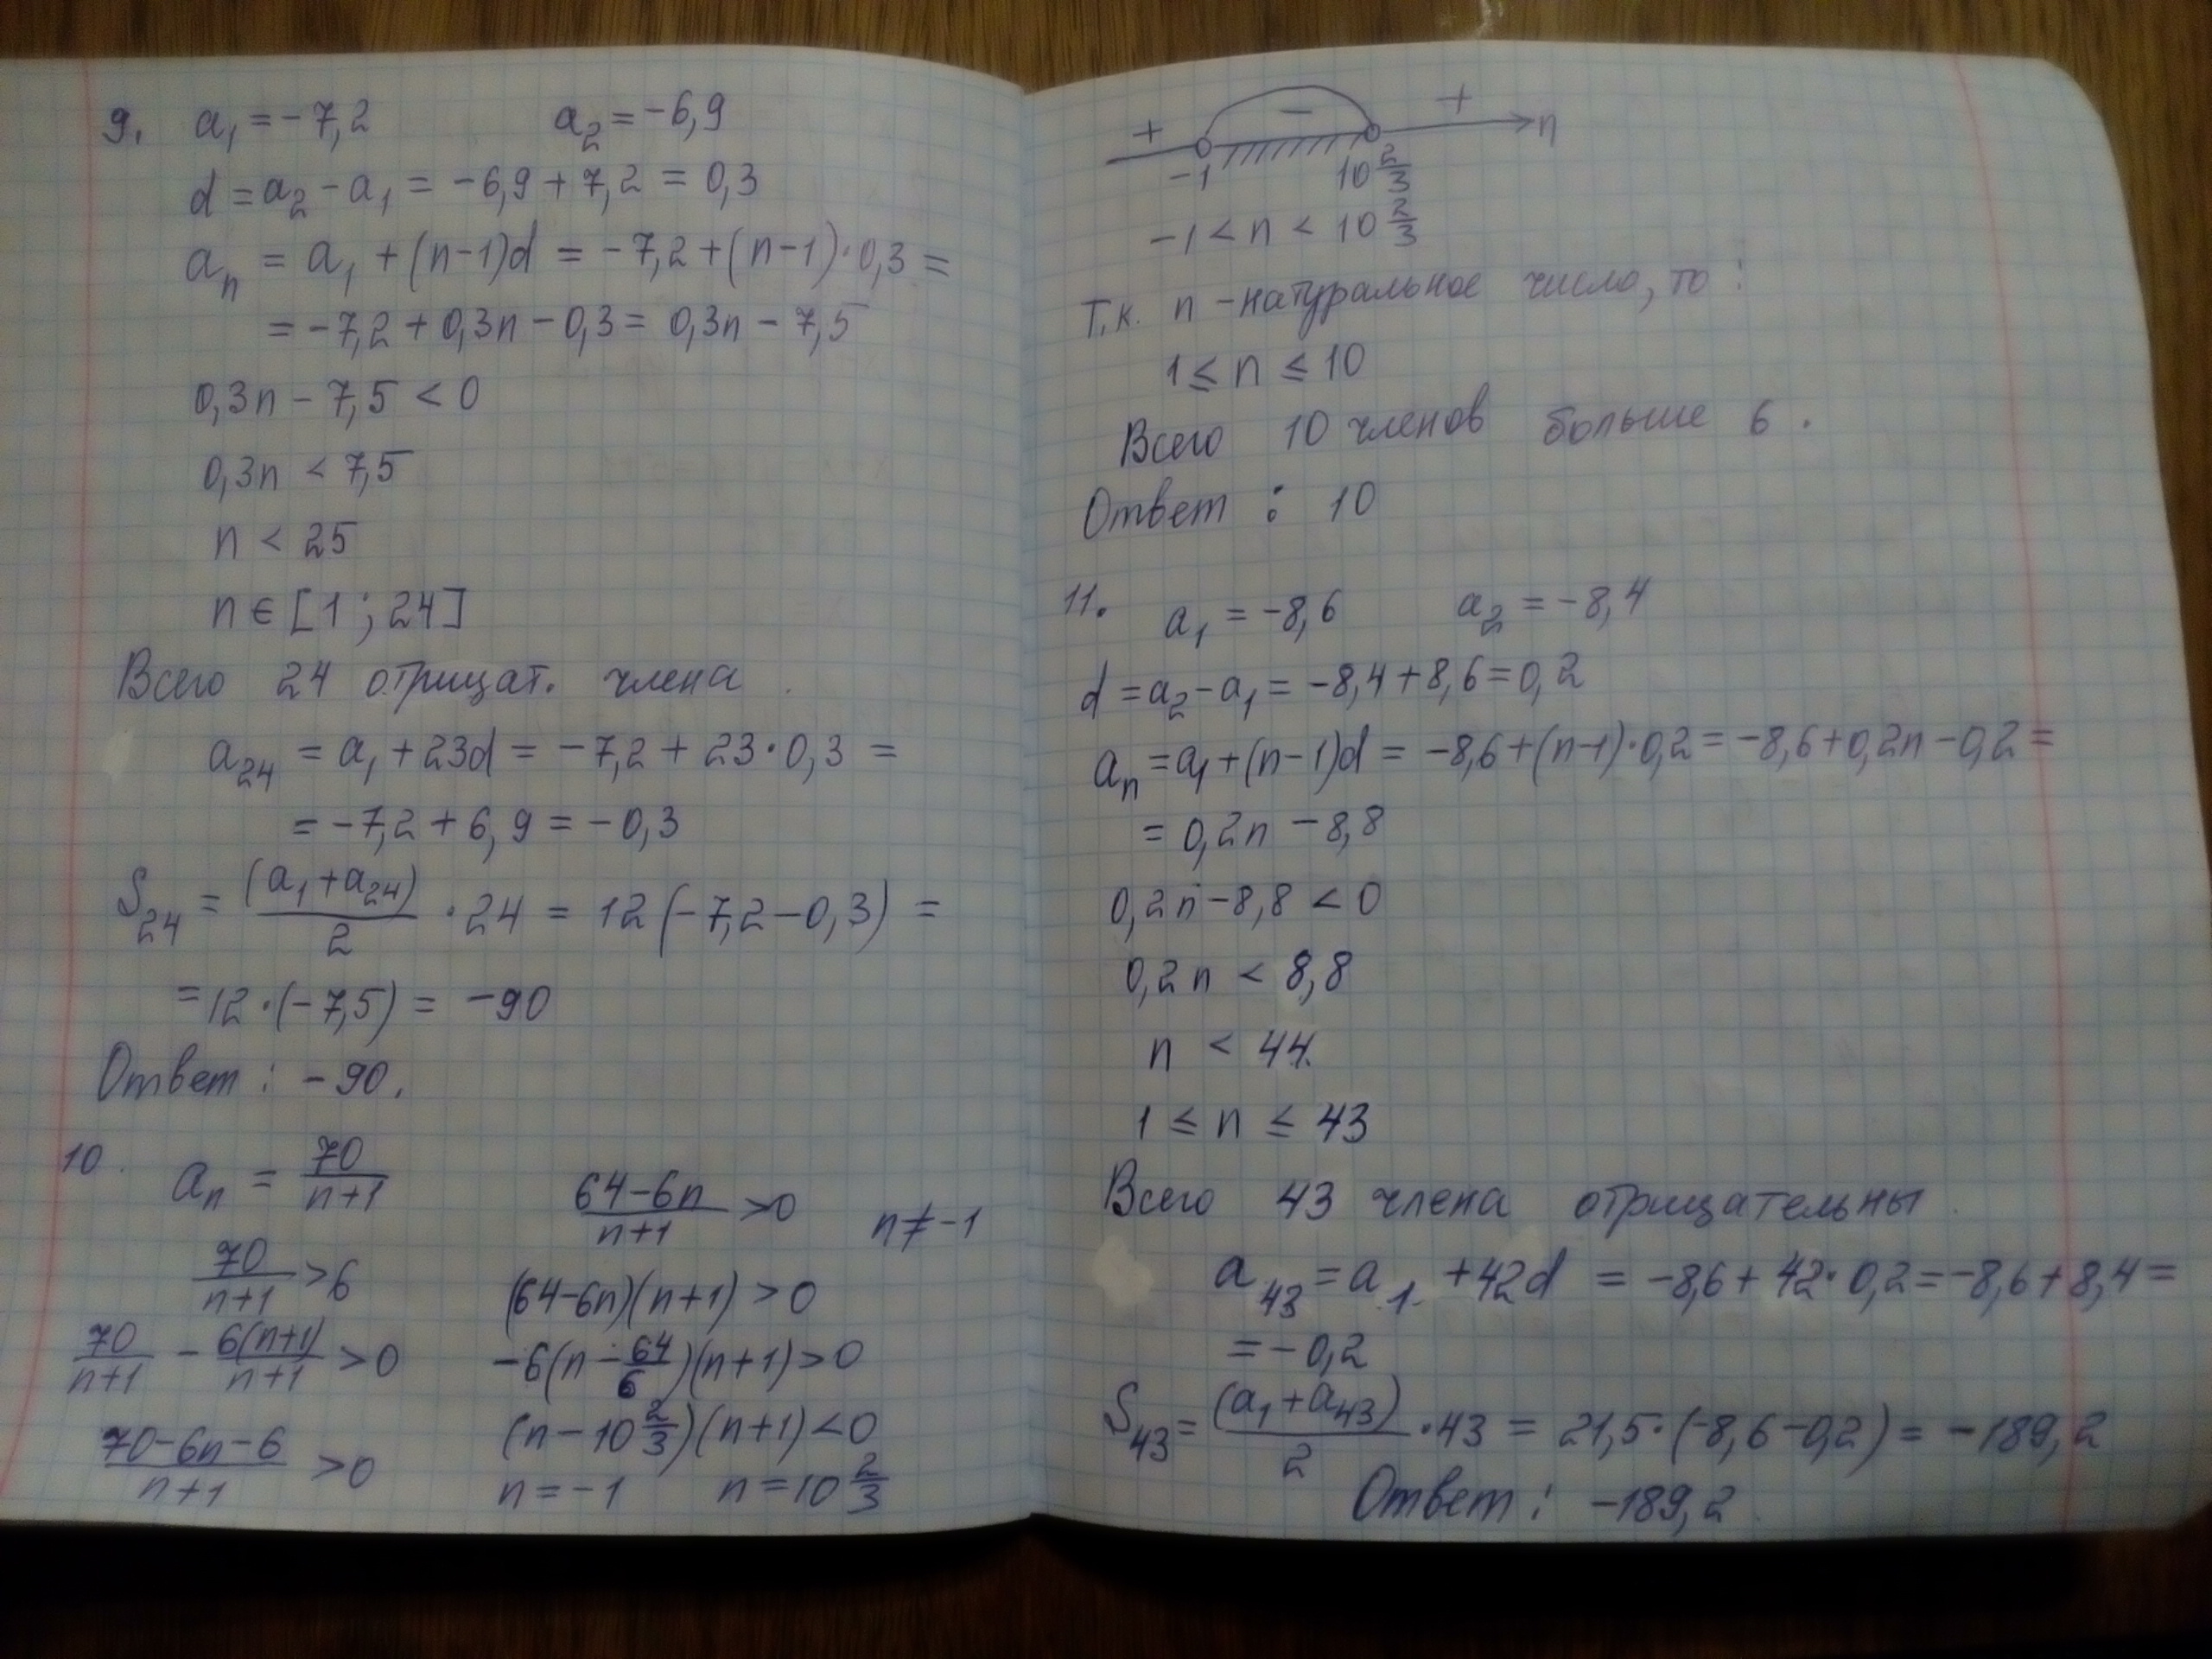 9. a₁ = -7,2 a₂ = -6,9
d = a₂ - a₁ = -6,9 + 7,2 = 0,3
aₙ = a₁ + (n-1)d = -7,2 + (n-1)·0,3 =
= -7,2 + 0,3n - 0,3 = 0,3n - 7,5
0,3n - 7,5 < 0
0,3n < 7,5
n < 25
n ∈ [1; 24]
Всего 24 отрицат. члена.
a₂₄ = a₁ + 23d = -7,2 + 23·0,3 =
= -7,2 + 6,9 = -0,3
S₂₄ = (a₁ + a₂₄)/2 · 24 = 12(-7,2 - 0,3) =
= 12·(-7,5) = -90
Ответ: -90.
10. aₙ = 70/(n+1)
70/(n+1) > 6
70/(n+1) - 6(n+1)/(n+1) > 0
(70-6n-6)/(n+1) > 0
(64-6n)/(n+1) > 0 n ≠ -1
(64-6n)(n+1) > 0
-6(n - 64/6)(n+1) > 0
(n - 10 2/3)(n+1) < 0
n = -1 n = 10 2/3
+ - + n
-1 10 2/3
-1 < n < 10 2/3
Т.к. n - натуральное число, то:
1 ≤ n ≤ 10
Всего 10 членов больше 6.
Ответ: 10
11. a₁ = -8,6 a₂ = -8,4
d = a₂ - a₁ = -8,4 + 8,6 = 0,2
aₙ = a₁ + (n-1)d = -8,6 + (n-1)·0,2 = -8,6 + 0,2n - 0,2 =
= 0,2n - 8,8
0,2n - 8,8 < 0
0,2n < 8,8
n < 44
1 ≤ n ≤ 43
Всего 43 члена отрицательны.
a₄₃ = a₁ + 42d = -8,6 + 42·0,2 = -8,6 + 8,4 =
= -0,2
S₄₃ = (a₁ + a₄₃)/2 · 43 = 21,5·(-8,6 - 0,2) = -189,2
Ответ: -189,2.